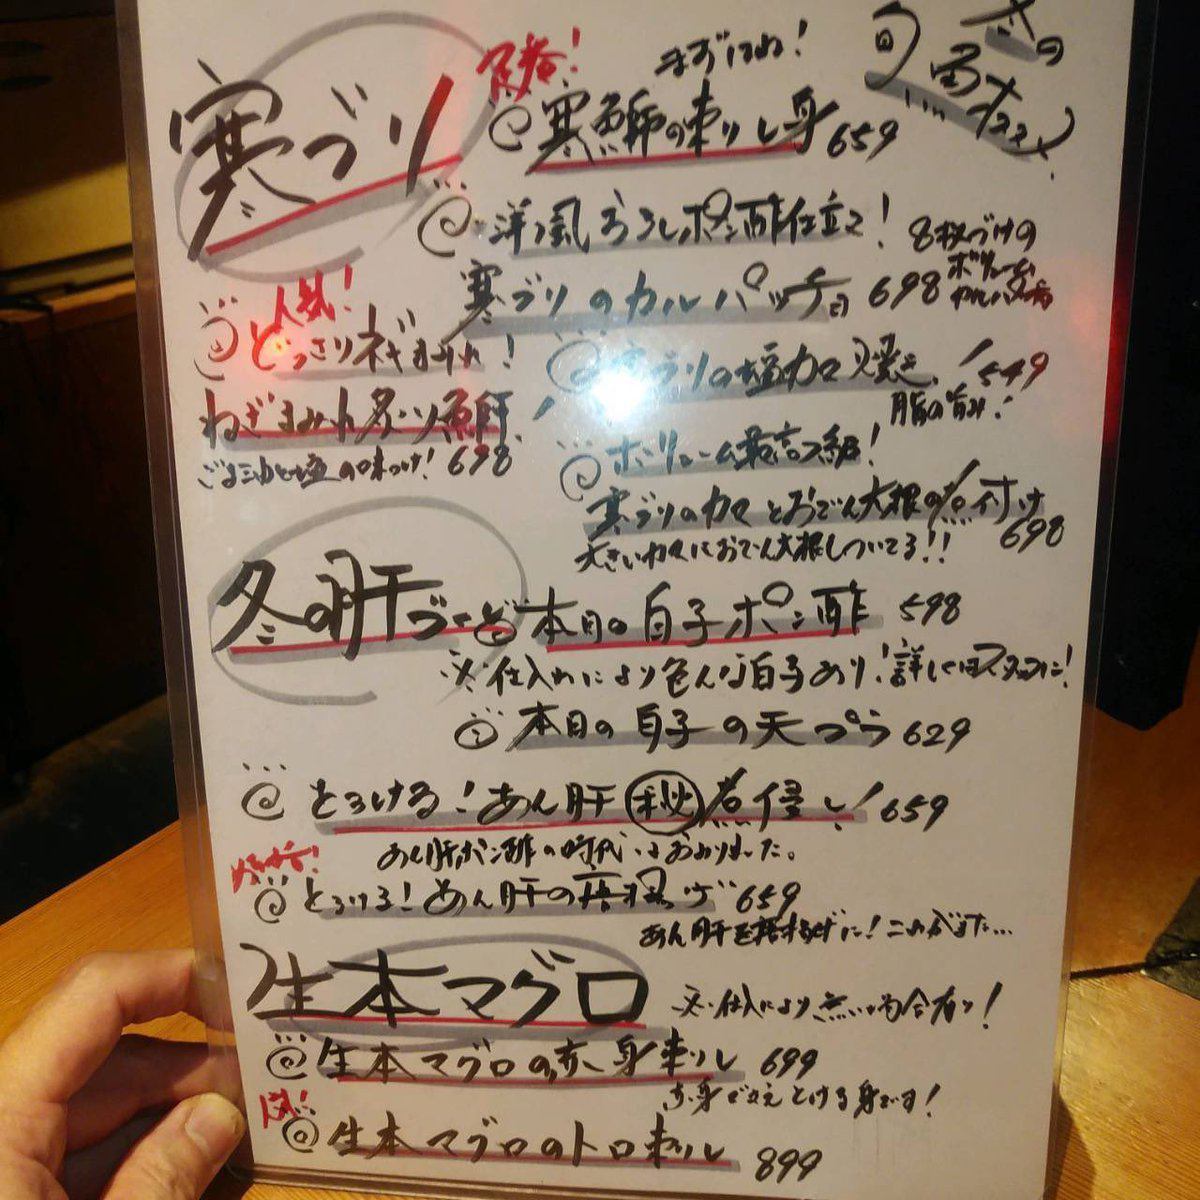 冬の
旬
寒ブリ
まずはね!
寒鰤の刺し身 659
洋風おろしポン酢仕立て!
寒ブリのカルパッチョ 698
8枚づけの
ボリューム
人気!
どっさりネギまみれ!
ねぎまみれ炙り
ごま油と塩の味つけ! 698
ブリの塩カマ焼き! 549
脂の旨み!
ボリューム最高級!
寒ブリのカマとおでん大根の煮付け
698
大きいカマにおでん大根もついてる!!
冬の肝づくし
本日の白子ポン酢 598
※仕入れにより色んな白子あり!詳しくはスタッフに!
本日の白子の天ぷら 629
とろける!あん肝㊙煮浸し! 659
あん肝ポン酢の時代はおわりました。
とろける!あん肝の 659
あん肝を に!これがまた…
生本マグロ
※仕入により無い場合有り!
生本マグロの赤身刺し 699
赤身でさえとける身です!
人気!
生本マグロのトロ刺し 899